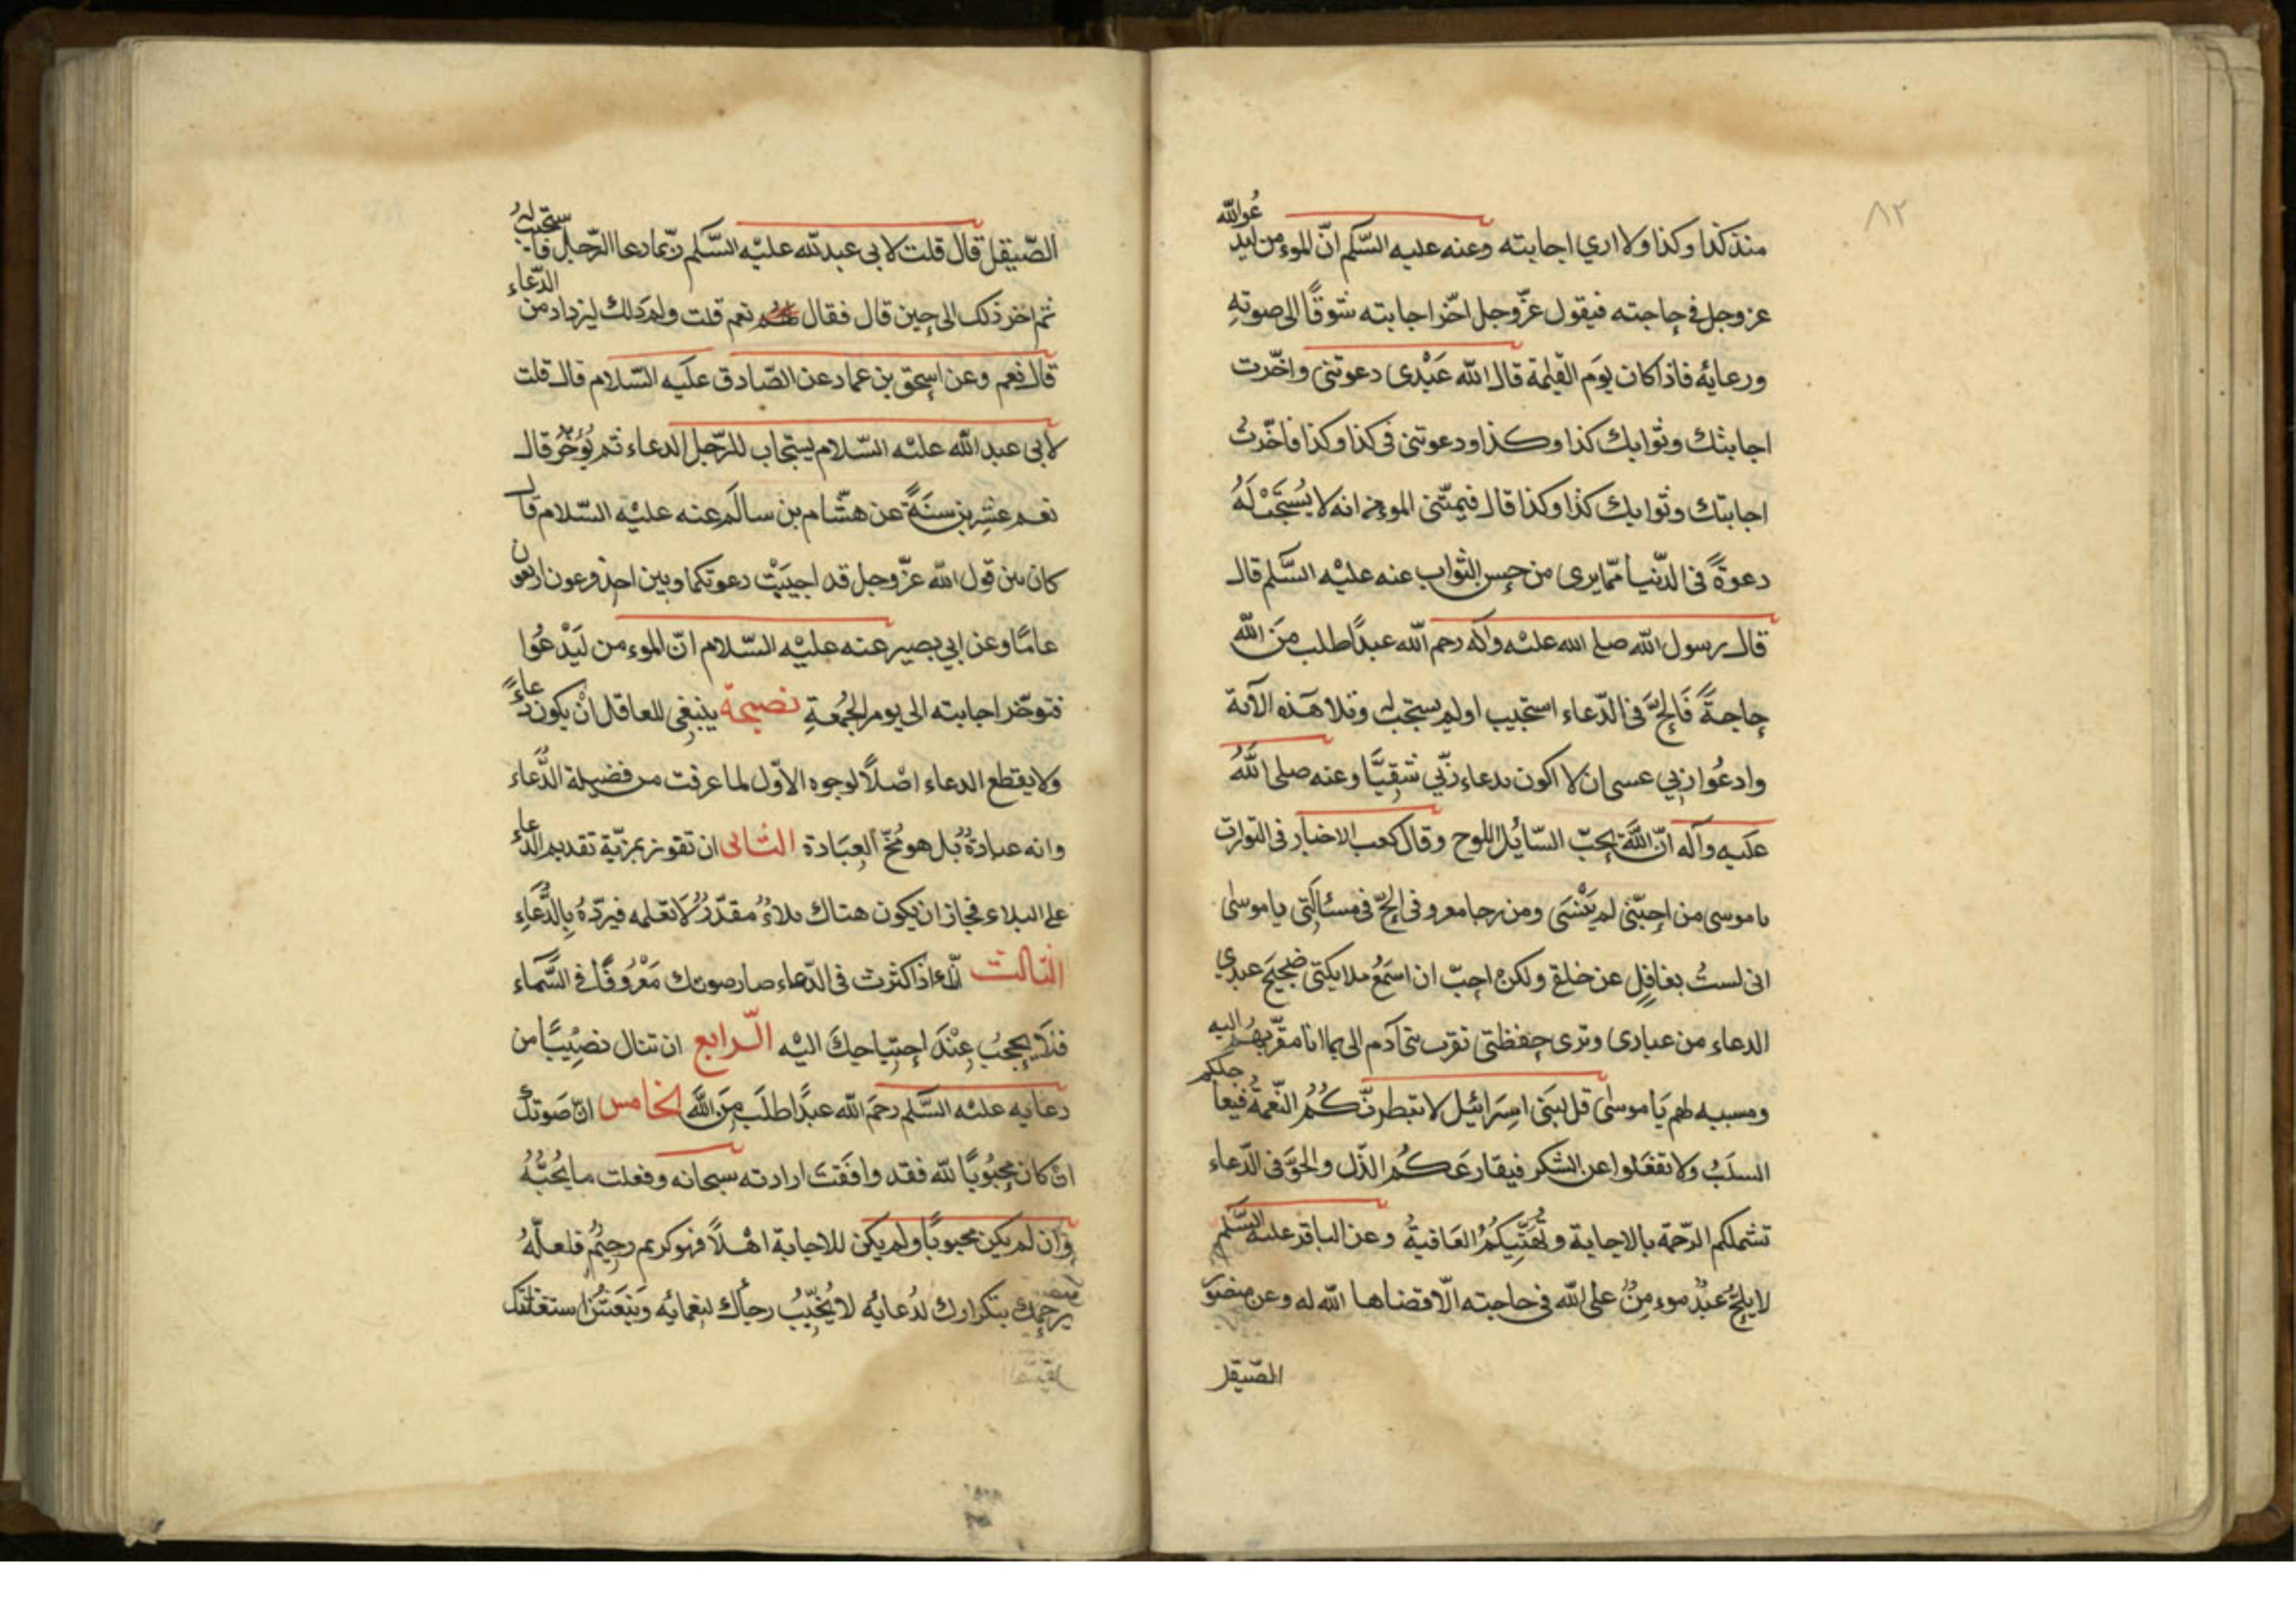 ٨٢
منذ كذا وكذا ولا اري اجابته وعنه عليه السّلم انّ الموءمن ليدعو الله
عز وجل في حاجته فيقول عزّ وجل اخّر اجابته شوقًا الى صوته
ودعايه فاذا كان يوم القيمة قال الله عبْدى دعوتنى واخّرت
اجابتك وثوابك كذا وكذا ودعوتنى فى كذا وكذا فاخّرت
اجابتك وثوابك كذا وكذا قال فيمتّنى الموءمن انه لا يُسْتَجَبْ لَهُ
دعوةً فى الدّنيا ممّا يرى من حسن الثواب عنه عليْه السَّلم قال
قال رسول الله صلى الله عليْه واله رحم الله عبدًا طلب مِنَ الله
حاجةً فَالحَّ فى الدّعاء استجيب او لم يستجب له وتلا هذه الآية
وادعُوا ربي عسى ان لا اكون بدعاء ربّي شقِيًّا وعنه صلى اللهُ
عليه وآله انّ اللهَ يحبّ السّايُل اللوح وقال كعب الاخبار فى التورات
يا موسى من احبّنى لم ينْسَى ومن رجا معروفى الحّ فى مسئالتى يا موسٰى
انى لستُ بغافِلٍ عن خلقى ولكن احبّ ان اسمَعُ ملايكتى ضجيجَ عبدي
الدعاء من عبادى وترى حفظتى تقرب بنى آدم الى بما انا مقوّيهم اليه
ومسببه لهم يَا موسٰى قل لبنى اسرَائيل لا تبطرنّكُمُ النّعمةُ فيعاجلكم
السلبُ ولا تغفَلوا عن الشكر فيقارعَكُم الذّل والحقَّ فى الدّعاء
تشملكم الرّحمة بالاجاية وتُهَنّيكُمُ العَافيةُ وعن الباقر عليه السّلم
لا يلحّ عبْدٌ موءمِنٌ على الله فى حاجته الّا قضاها الله له وعن منصور
الصّيقل
الصّيقل قال قلت لابى عبد الله عليْه السَّلم ربّما دعا الرّجل فاستجيب لهُ
ثم اخر ذلك الى حين قال فقال نعم قلت ولم ذلك ليزداد من الدّعاء
قال نعم وعن اسحق بن عماد عن الصّادق عليه السّلام قال قلت
لابى عبد الله عليْه السّلام يستجاب للرّجل الدعاء ثم يُؤخّرُ قال
نعم عشرين سنَةً عن هشّام بن سالم عنه عليْه السّلام قال
كان بين قول الله عزّ وجل قد اجيبَتْ دعوتكما وبين اخذ فرعون اربعون
عامًا وعن ابي بصير عنه عليْه السّلام انّ الموءمن ليَدْعُوا
فتوخّر اجابته الى يوم الجُمُعةِ نصيحة ينبغى للعاقل انْ يكون دعاءً
ولا يقطع الدعاء اصْلاً لوجوه الاوّل لما عرفت من فضيلة الدُّعاء
وانه عبادةٌ بل هو مُخّ العِبَادة الثانى ان تفوز بمزيّة تقديم الدعاء
على البلاء فجاز ان يكون هناك بلاءٌ مقدّرٌ لا تعلمه فيردّهُ بِالدُّعاءِ
الثالث انّك اذا كثرت فى الدّعاء صار صوتك مَعْرُوفًا فى السَّماء
فلا يحجبُ عِنْدَ احتياجك اليْه الرّابع ان تنال نصِيبًا من
دعايه عليْه السّلم رحمَ الله عبدًا طلَب مِنَ اللَّهِ الخامس انّ صَوتكَ
ان كان محبُوبًا لله فقد وافَقتَ ارادته سبحانه وفعلت ما يُحبُّهُ
وان لم يكن محبوبًا ولم يكن للاجابة اهْلاً فهو كريم رحيْمٌ فلعلّهُ
يرحمك بتكرارك لدُعايُه لا يُخَيّبُ رجآك لنعمايُه